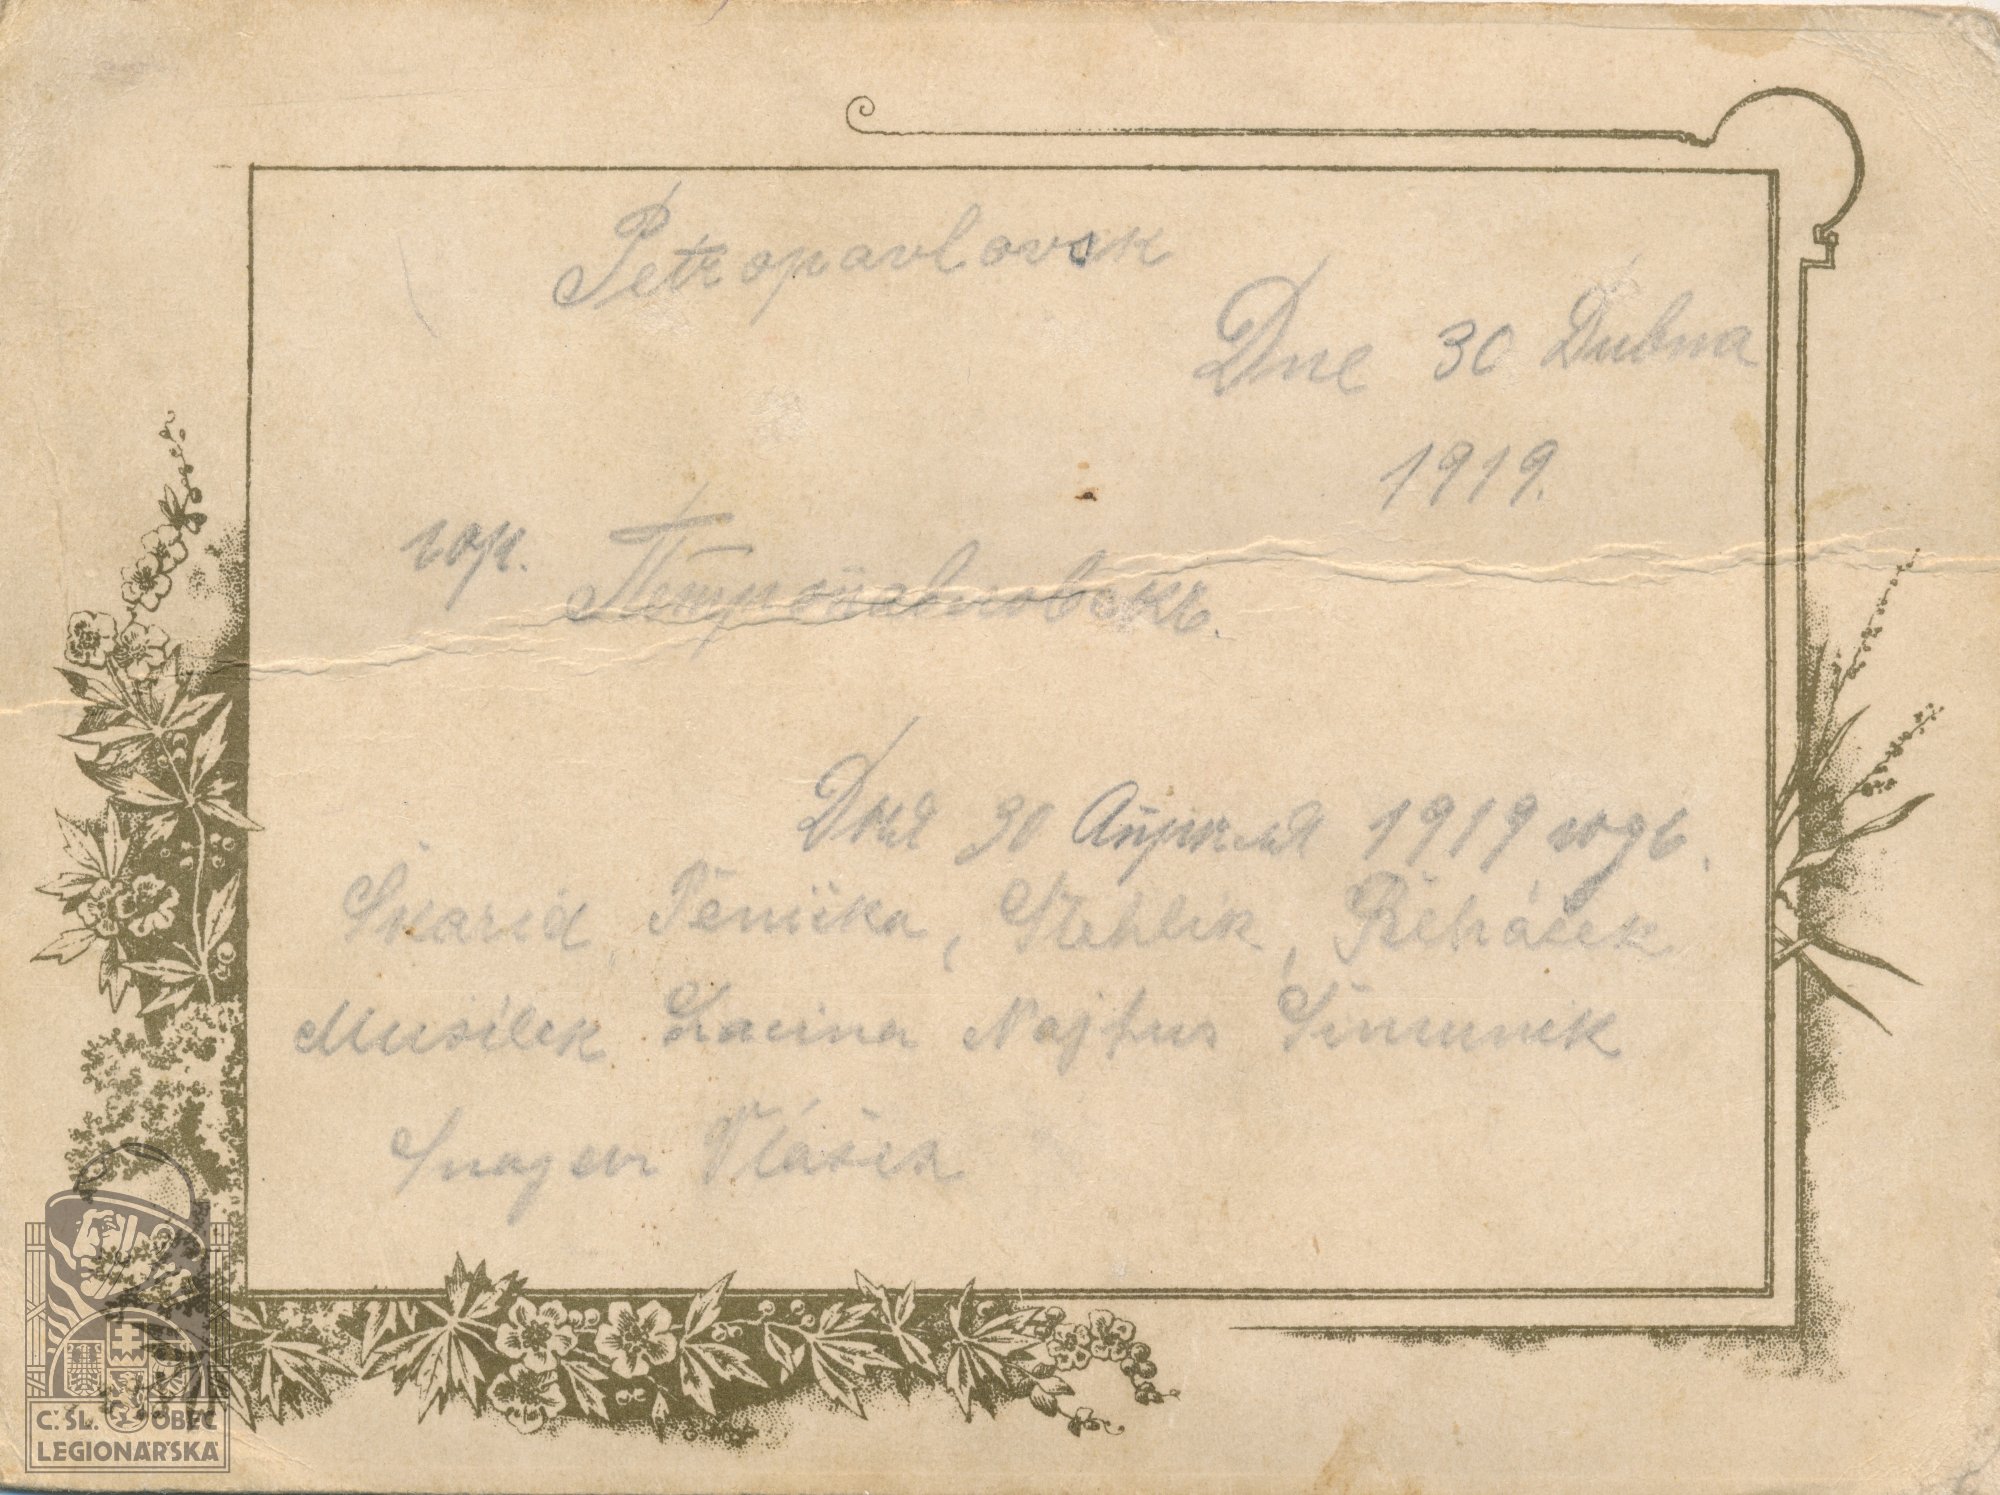 Petropavlovsk
Dne 30 Dubna
1919.
гор. Петропавловскъ.
Дня 30 Апреля 1919 годъ.
Škarid, Pěnička, Stehlík, Řehášek
Musilek Lacina Najhus Šimunek
Snagen Vlášek
Č. SL. OBEC
LEGIONÁŘSKÁ